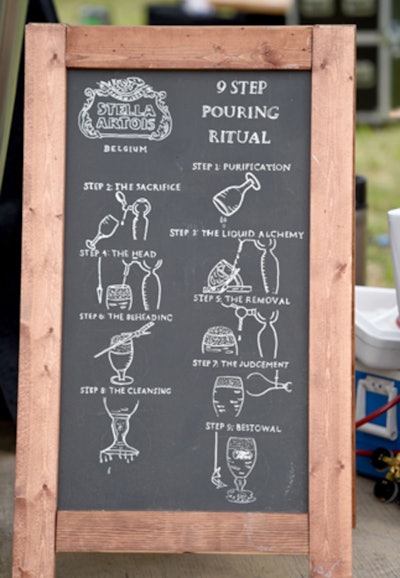 STELLA
ARTOIS
BELGIUM
9 STEP
POURING
RITUAL
STEP 1: PURIFICATION
STEP 2: THE SACRIFICE
STEP 3: THE LIQUID ALCHEMY
STEP 4: THE HEAD
STEP 5: THE REMOVAL
STEP 6: THE BEHEADING
STEP 7: THE JUDGEMENT
STEP 8: THE CLEANSING
STEP 9: BESTOWAL